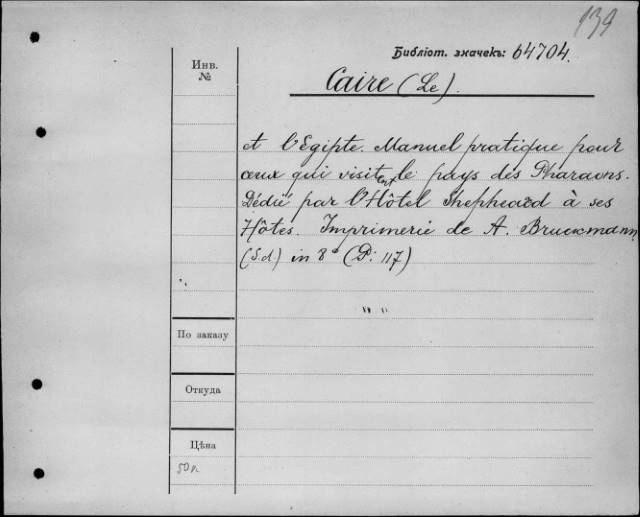 139
Библіот. значекъ: 64704.
Инв.
№
Caire (Le).
et l'Egipte. Manuel pratique pour
ceux qui visitent le pays des Pharaons.
Dédié par l'Hôtel Shepheard à ses
Hôtes. Imprimerie de A. Bruckmann
(S.d.) in 8° (D: 117)
По заказу
Откуда
Цѣна
50 п.